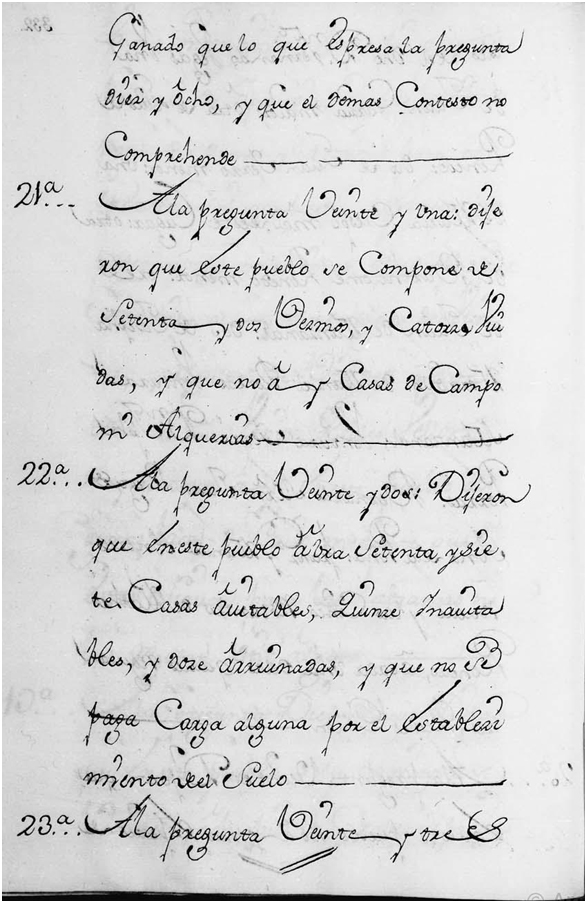 Ganado que lo que espresa la pregunta
diez y ôcho, y que el demas Contesto no
Comprehende
21ª... A la pregunta Veinte y una: dije
ron que este pueblo se Compone de
Setenta y dos Vezinos, y Catorze Viu
das, y que no â y Casas de Campo
ni Alquerias
22ª... A la pregunta Veinte y dos: Dijeron
que en este pueblo âbra Setenta, y sie
te Casas âvitables, Quinze Inavita
bles, y doze ârruinadas, y que no se
paga Carga alguna por el establezi
miento del Suelo
23ª... A la pregunta Veinte y tres